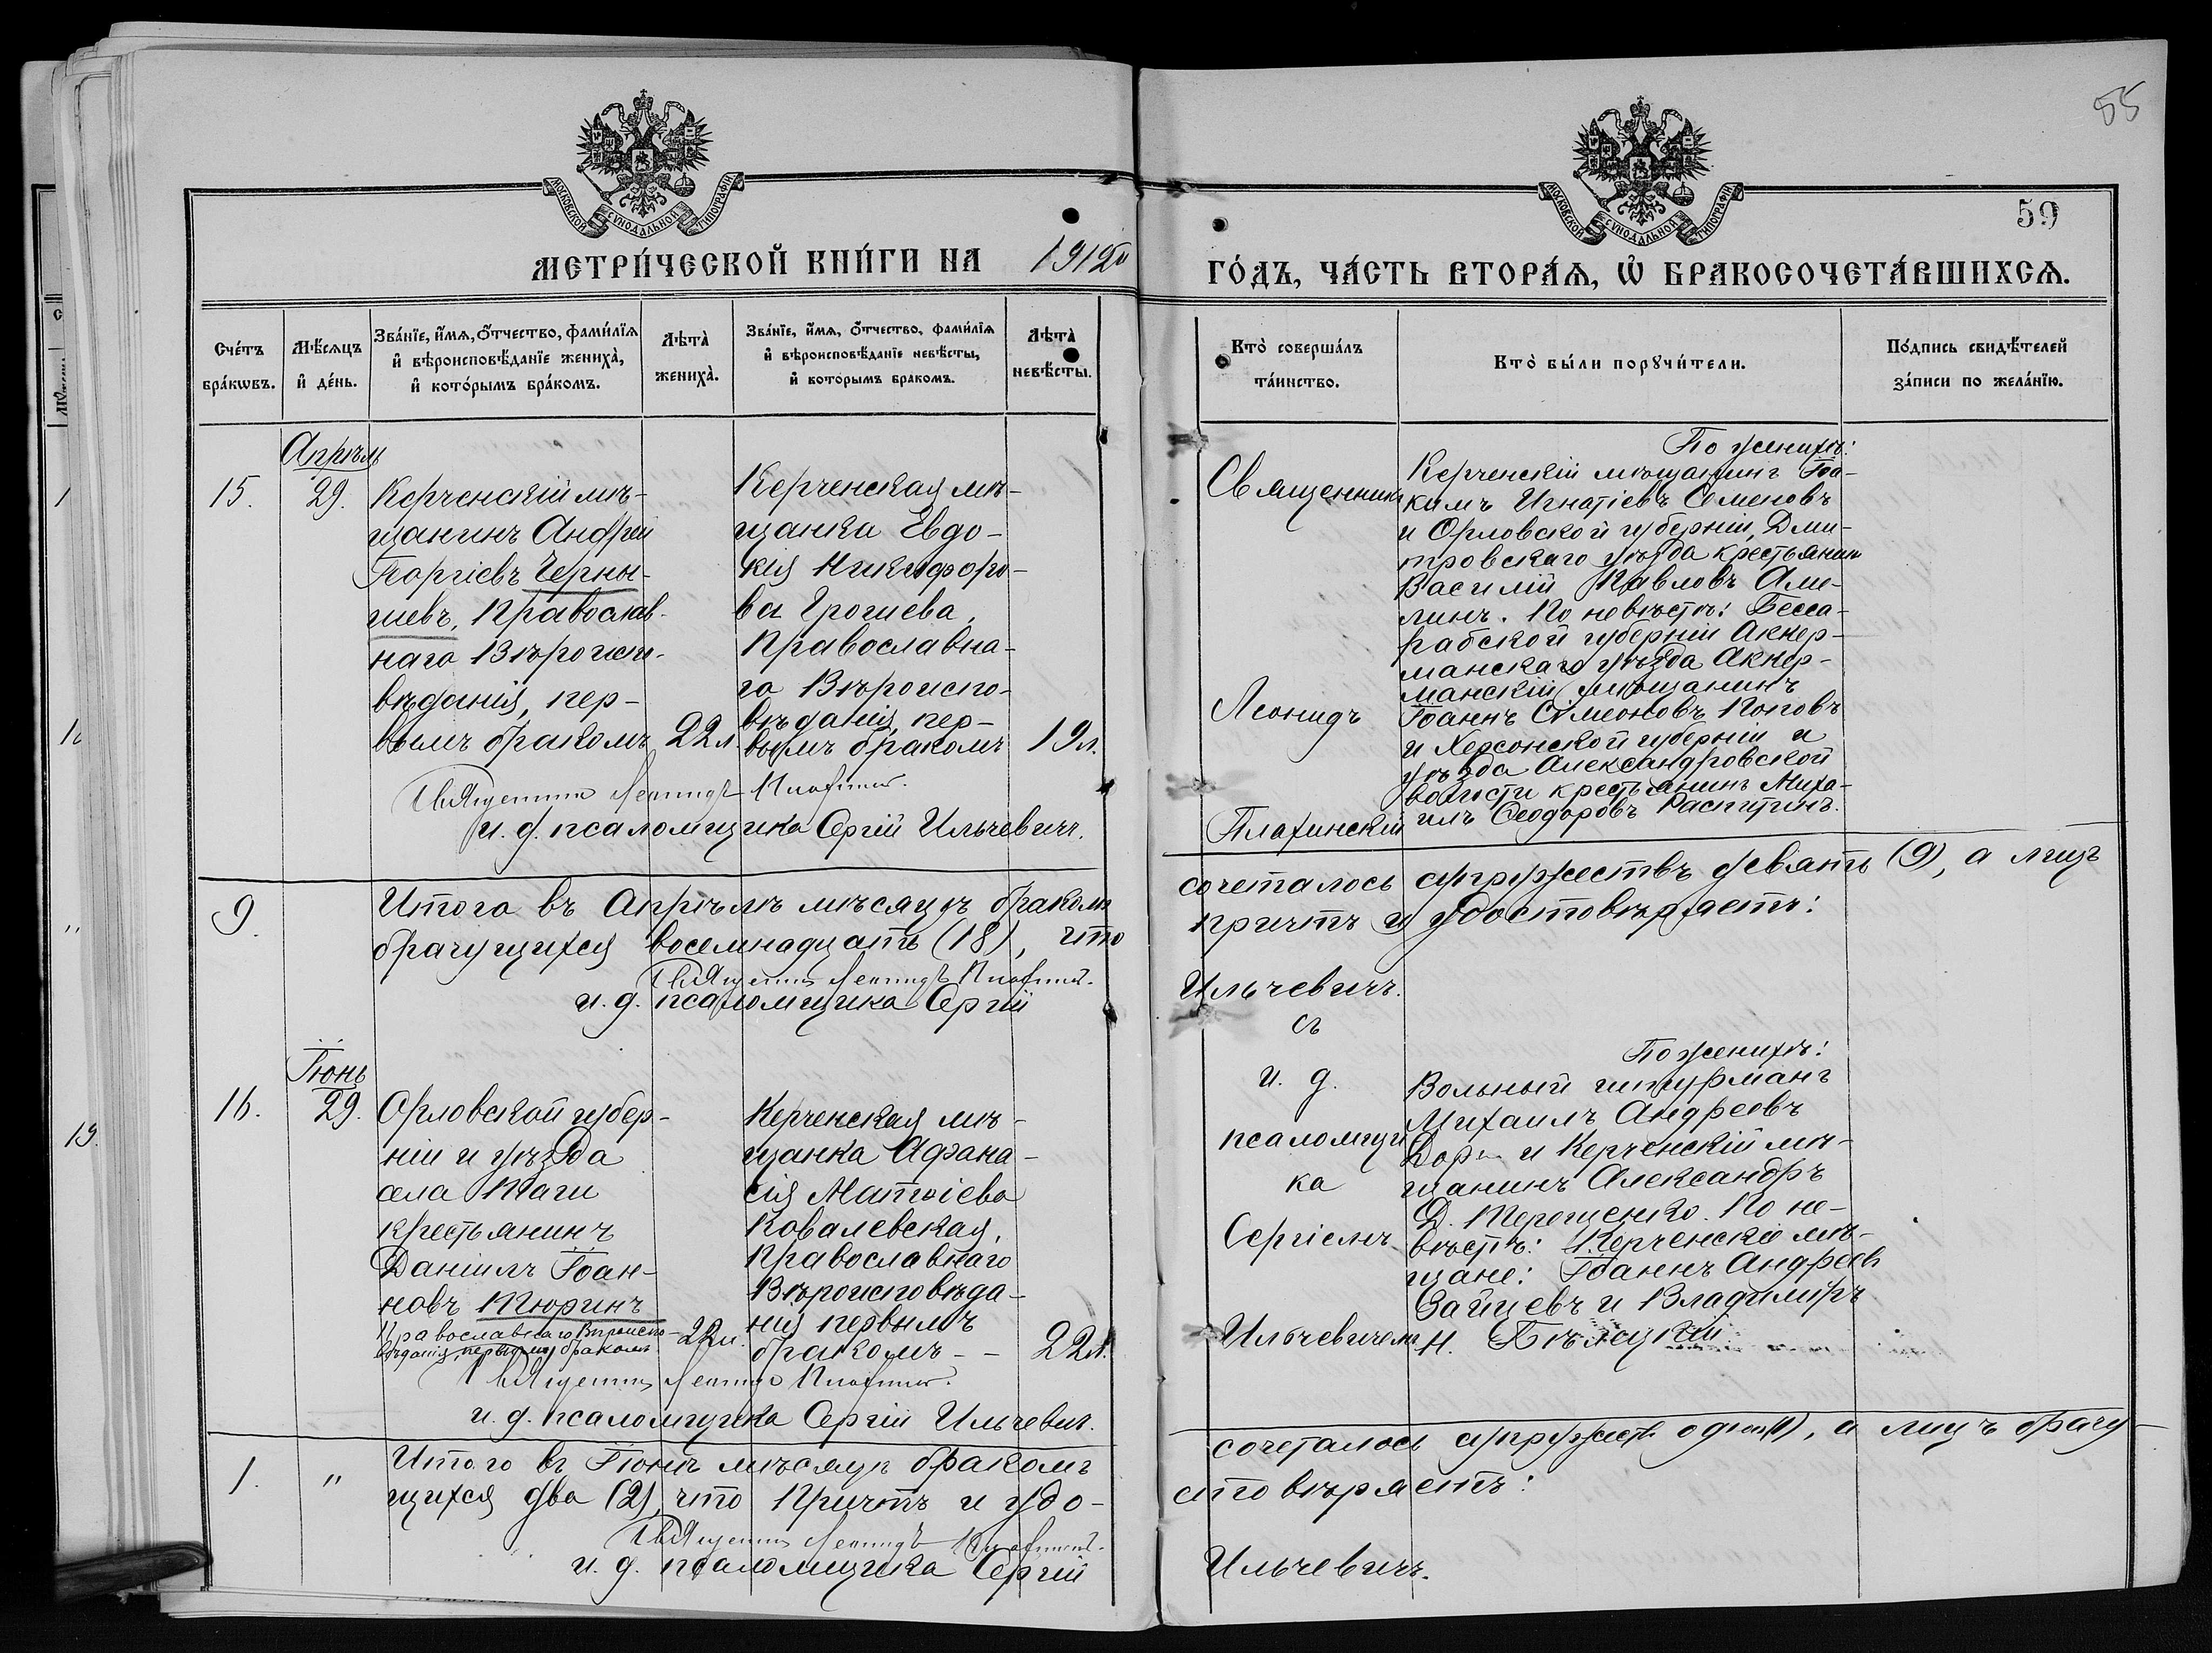 55
59
МОСКОВСКОЙ СѴНОДАЛЬНОЙ ТИПОГРАФІИ
МОСКОВСКОЙ СѴНОДАЛЬНОЙ ТИПОГРАФІИ
МЕТРИ́ЧЕСКОЙ КНИ́ГИ НА 1912й
ГО́ДЪ, ЧА́СТЬ ВТОРА́Ѧ, Ѽ БРАКОСОЧЕТА́ВШИХСѦ.
Сче́тъ
бра́кѡвъ.
Мѣ́сѧцъ
и҆ де́нь.
Зва́нїе, и҆́мѧ, ѻ҆́тчество, фами́лїѧ
и҆ вѣроисповѣ́данїе жениха̀,
и҆ кото́рымъ бра́комъ.
Лѣта̀
жениха̀.
Зва́нїе, и҆́мѧ, ѻ҆́тчество, фами́лїѧ
и҆ вѣроисповѣ́данїе невѣ́сты,
и҆ которымъ бракомъ.
Лѣта̀
невѣ́сты.
Кто̀ соверша́лъ
та́инство.
Кто̀ бы́ли порꙋчи́тели.
По́дпись свидѣ́телей
за́писи по жела́нїю.
15.
Апрѣль
29.
Керченскій мѣ-
щанинъ Андрей
Георгіевъ Черны-
шевъ, Православ-
наго Вѣроиспо-
вѣданія, пер-
вымъ бракомъ
22 л.
Керченская мѣ-
щанка Евдо-
кія Никифоро-
ва Грошева,
Православна-
го Вѣроиспо-
вѣданія, пер-
вымъ бракомъ
19 л.
Священникъ Леонидъ Плахинскій.
и. д. псаломщика Сергій Ильчевичъ.
Священникъ
Леонидъ
Плахинскій
По женихѣ:
Керченскій мѣщанинъ Іоа-
кимъ Игнатіевъ Семеновъ
и Орловской губерніи, Дми-
тровскаго уѣзда крестьянин
Василій Павловъ Але-
линъ. По невѣстѣ: Бесса-
рабской губерніи Аккер-
манскаго уѣзда Аккер-
манскій мѣщанинъ
Іоаннъ Симеоновъ Поповъ
и Херсонской губерніи и
уѣзда Александровской
волости крестьянинъ Миха-
илъ Ѳеодоровъ Распитинъ.
9.
Итого въ Апрѣлѣ мѣсяцѣ бракомъ
сочеталось супружествъ девять (9), а лицъ
брачущихся восемнадцать (18), что
причтъ и удостовѣряетъ:
Священникъ Леонидъ Плахинскій.
и. д. псаломщика Сергій
Ильчевичъ.
16.
Іюнь
29.
Орловской губер-
ніи и уѣзда
села Таги
крестьянинъ
Даніилъ Іоан-
новъ Тюринъ
Православнаго Вѣроиспо-
вѣданія, первымъ бракомъ
22 л.
Керченская мѣ-
щанка Афана-
сія Матѳіева
Ковалевская,
Православнаго
Вѣроисповѣда-
нія первымъ
бракомъ - -
22 л.
Священникъ Леонидъ Плахинскій.
и. д. псаломщика Сергій Ильчевич.
съ
и. д.
псаломщи
ка
Сергіемъ
Ильчевичемъ
По женихѣ:
Вольный штурманъ
Михаилъ Андреевъ
и Керченскій мѣ-
щанинъ Александръ
Д. Терещенко. По не-
вѣстѣ: Керченскіе мѣ-
щане: Іоаннъ Андреевъ
Зайцевъ и Владиміръ
Н. Бѣляцкій
1.
"
Итого въ Іюнѣ мѣсяцѣ бракомъ
сочеталось супружествъ одно (1), а лицъ брачу-
щихся два (2), что Причтъ и удо-
стовѣряетъ:
Священникъ Леонидъ Плахинскій.
и. д. псаломщика Сергій
Ильчевичъ.